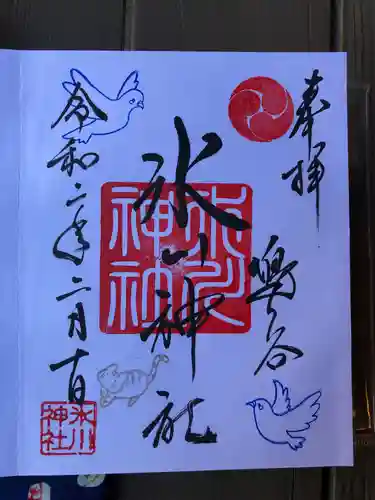 奉拝
鳩ヶ谷
氷川神社
氷川
神社
令和二年二月十一日
氷川
神社